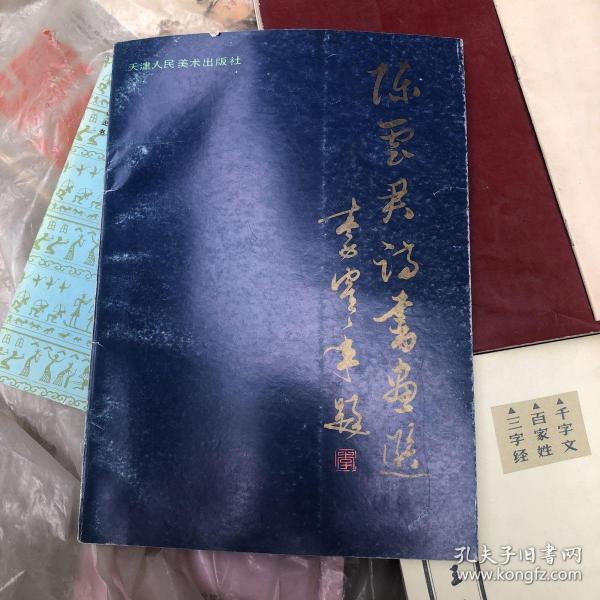 天津人民美术出版社
陈云君诗书画选
李霁年题
▲千字文
▲百家姓
▲三字经
孔夫子旧书网
kongfz.com